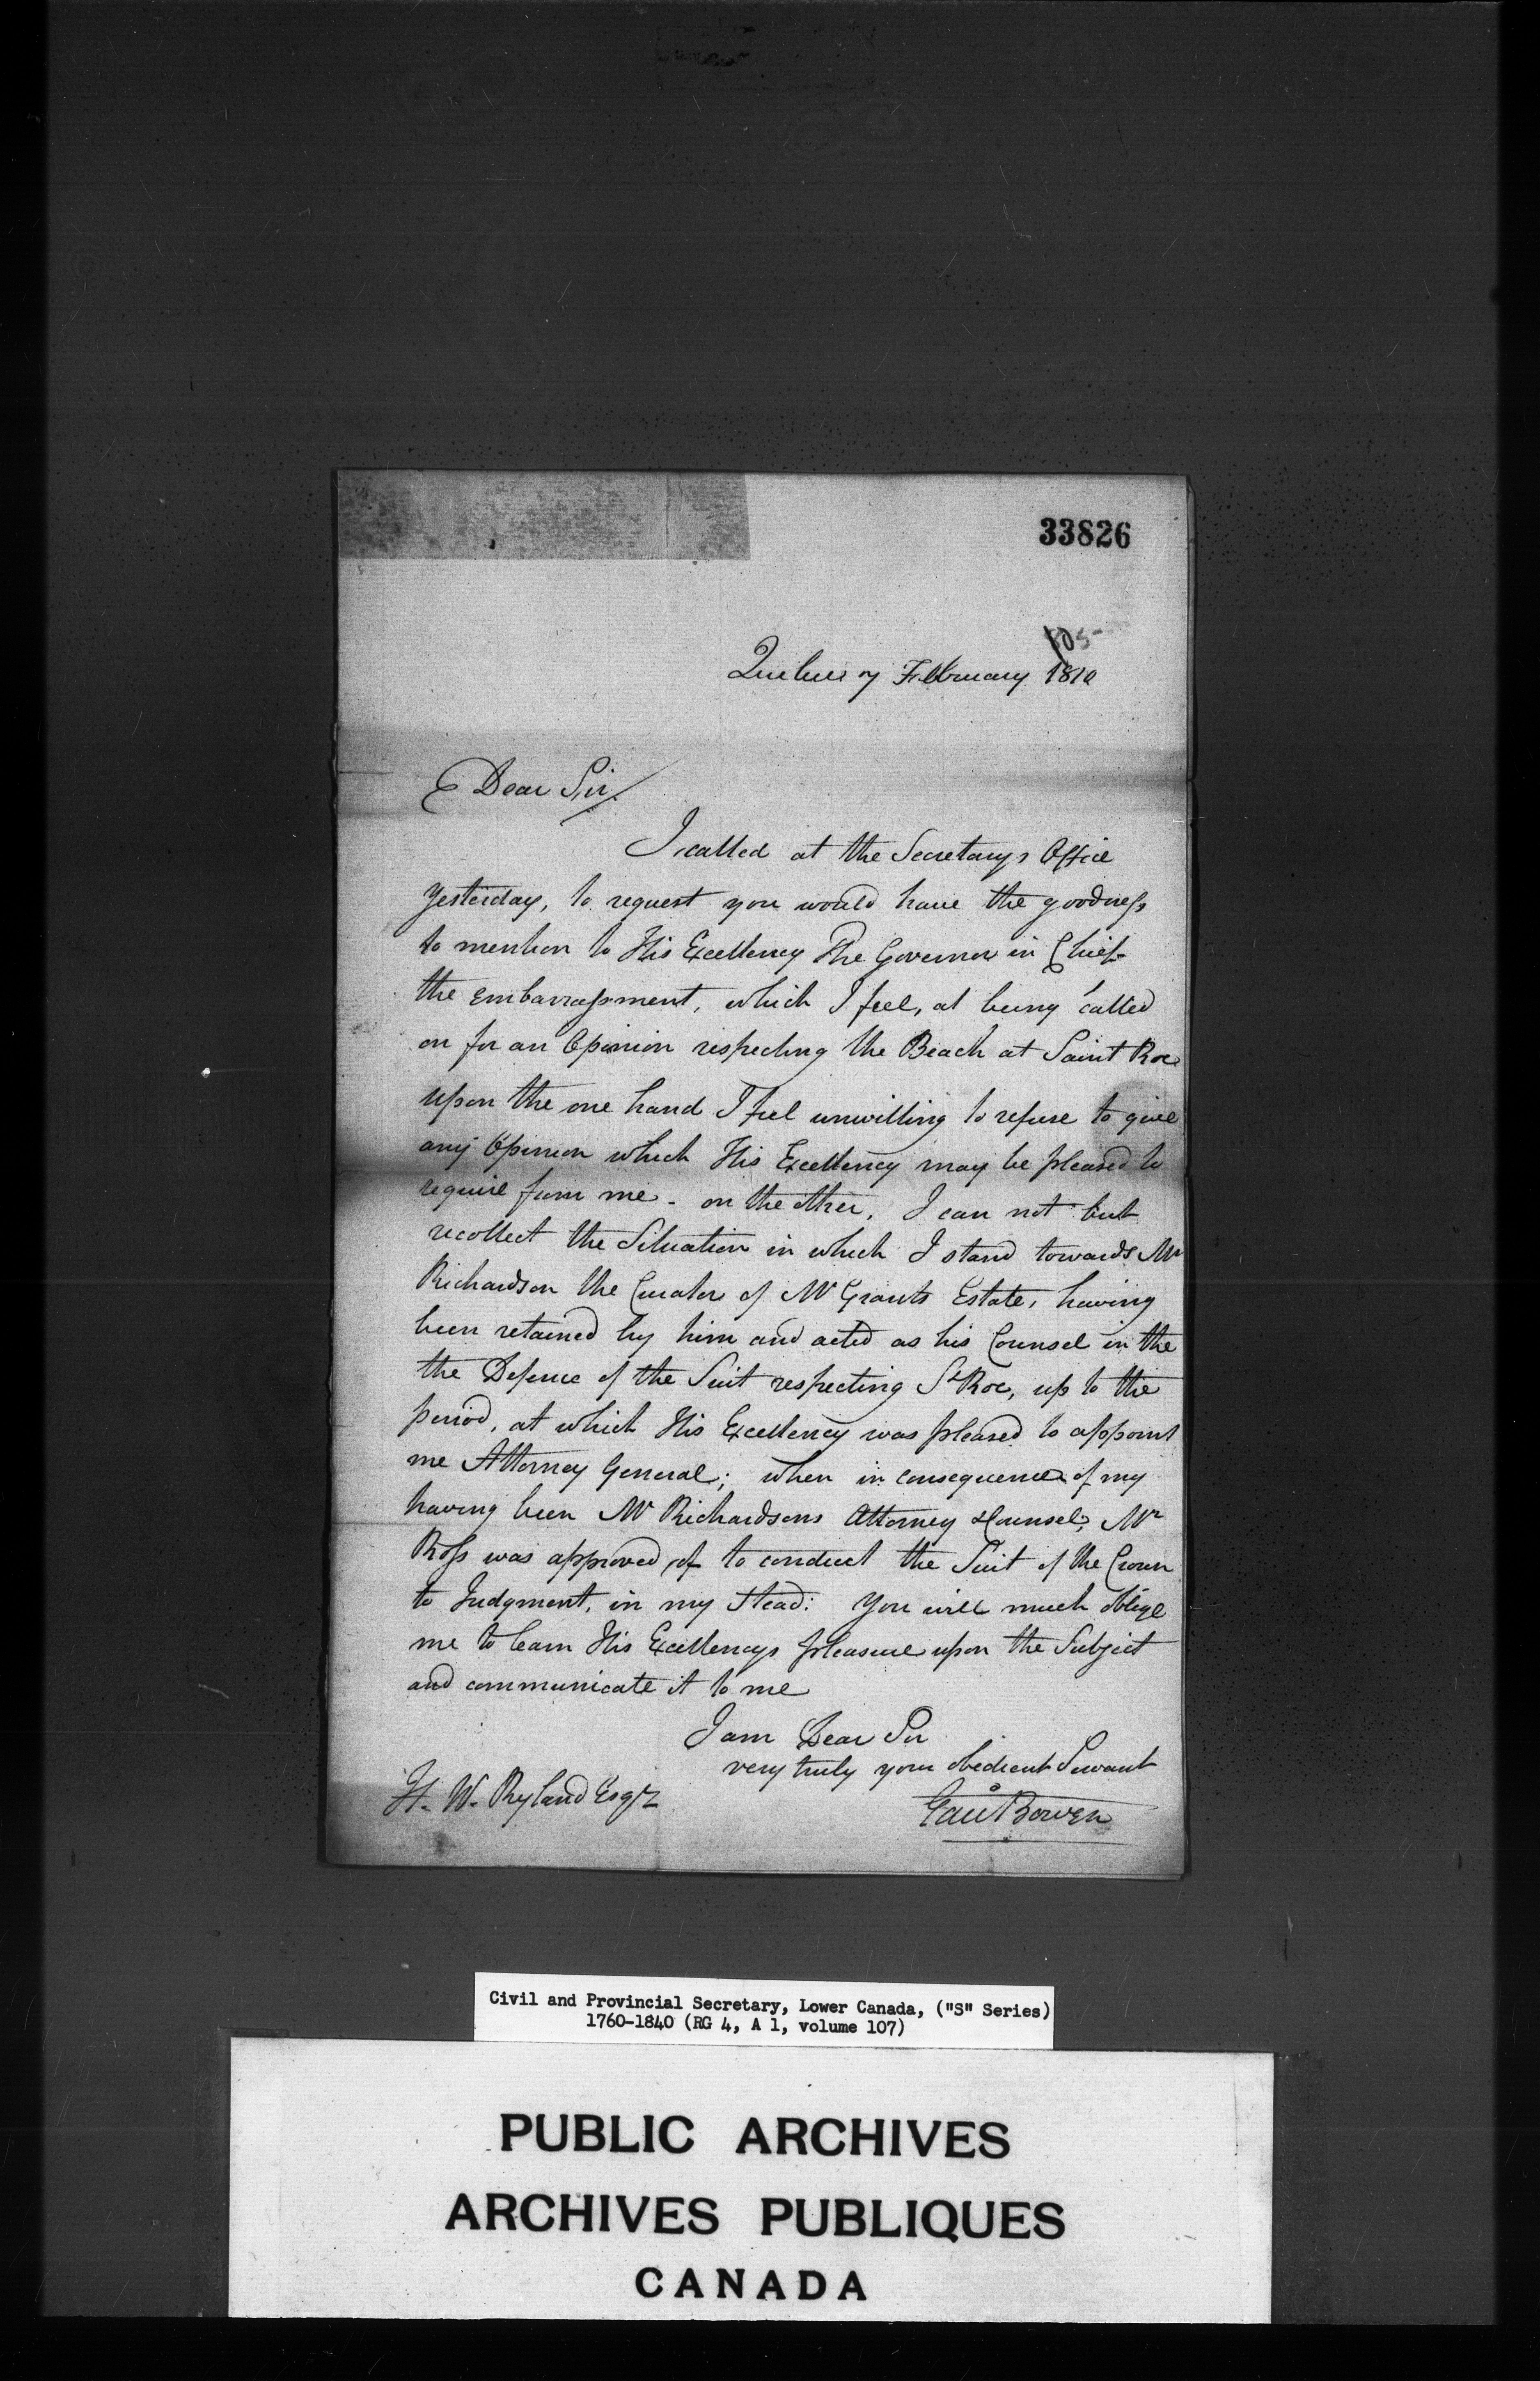 33826
105
Quebec 7 February 1810
Dear Sir
I called at the Secretarys Office
yesterday, to request you would have the goodness
to mention to His Excellency The Governor in Chief
the embarrassment, which I feel, at being called
on for an Opinion respecting the Beach at Saint Roc
upon the one hand I feel unwilling to refuse to give
any Opinion which His Excellency may be pleased to
require from me - on the other, I can not but
recollect the Situation in which I stand towards Mr
Richardson the Curator of Mr Grants Estate, having
been retained by him and acted as his Counsel in the
the Defence of the Suit respecting St Roc, up to the
period, at which His Excellency was pleased to appoint
me Attorney General; when in consequence of my
having been Mr Richardsons Attorney & Counsel, Mr
Ross was approved of to conduct the Suit of the Crown
to Judgment, in my Stead: You will much oblige
me to learn His Excellencys pleasure upon the Subject
and communicate it to me
I am Dear Sir
very truly your obedient Servant
H. W. Ryland Esqr
Edw Bowen
Civil and Provincial Secretary, Lower Canada, ("S" Series)
1760-1840 (RG 4, A 1, volume 107)
PUBLIC ARCHIVES
ARCHIVES PUBLIQUES
CANADA